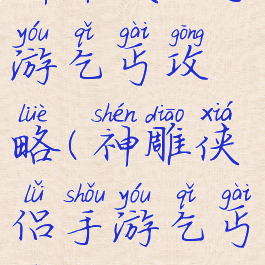 yóu qǐ gài gōng
游乞丐攻
lüè shén diāo xiá
略(神雕侠
lǚ shǒu yóu qǐ gài
侣手游乞丐